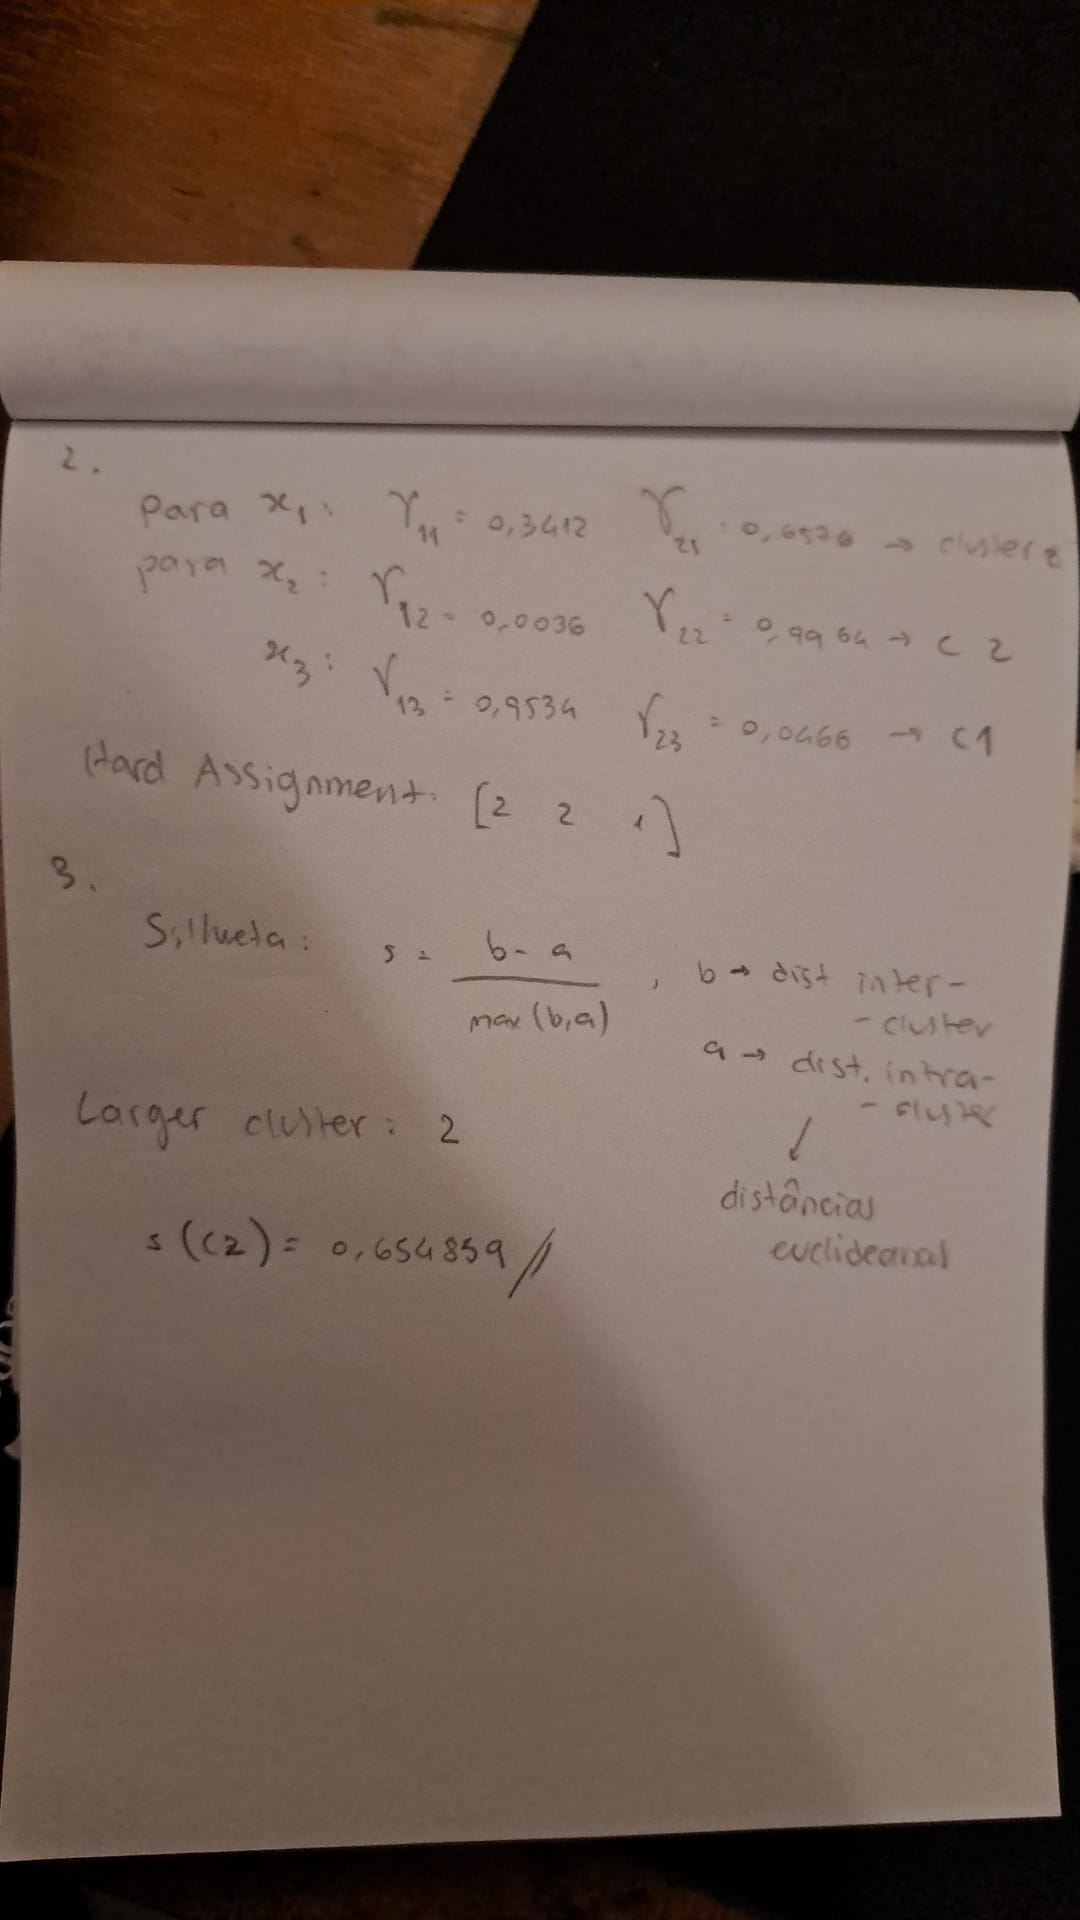 2.
para x₁: γ₁₁ = 0,3412 γ₂₁ : 0,6578 → cluster 2
para x₂: γ₁₂ = 0,0036 γ₂₂ = 0,9964 → C 2
x₃: γ₁₃ = 0,9534 γ₂₃ = 0,0466 → C1
Hard Assignment: [2 2 1]
3.
Sillueta: s = b - a / max (b,a) , b → dist inter-
- cluster
a → dist. intra-
- cluster
Larger cluster: 2
↓
distâncias
euclideanas
s (C2) = 0,654859 //